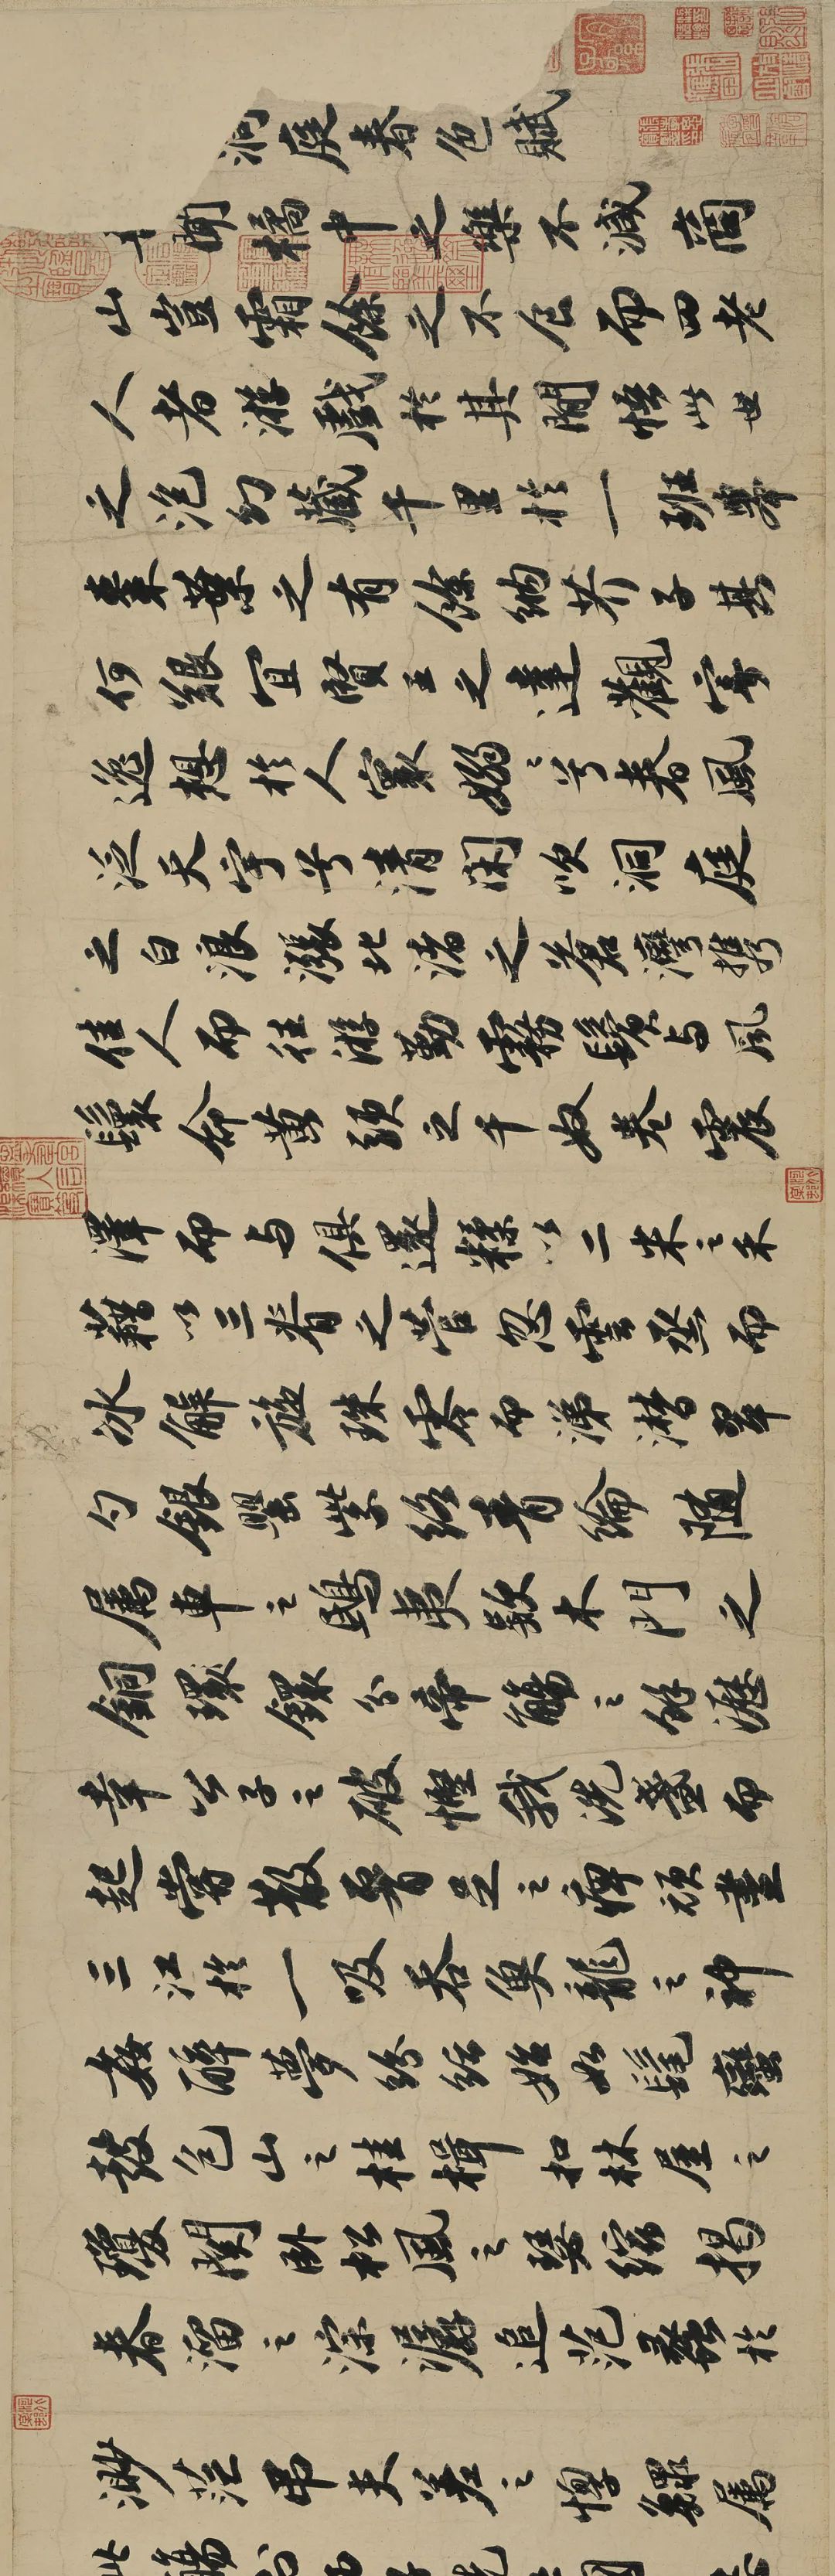 洞庭春色賦
吾聞橘中之樂不減商
山豈霜餘之不食而四老
人者游戲於其間悟此世
之泡幻藏千里於一班舉
棗葉之有餘納芥子其
何艱宜賢王之達觀寄
逸想於人寰嫋〻兮春風
泛天宇兮清閑吹洞庭
之白浪漲北渚之蒼灣攜
佳人而往游勤霧鬢与風
鬟命黃頭之千奴卷震
澤而与俱還糅以二米之禾
藉以三脊之菅忽雲烝而
冰解旋珠零而涕潸翠
勺銀罌紫絡青綸隨
屬車之鴟夷款木門之
銅環鐶分帝觴之餘瀝
幸公子之破慳我洗盞而
起嘗散腰足之痺頑盡
三江於一吸吞魚龍之神
姦醉夢紛紜始如髦蠻
鼓包山之桂楫扣林屋之
瓊關卧松風之瑟縮揭
春溜之淙潺追范蠡於
渺茫弔夫差之惸鰥屬
此觴